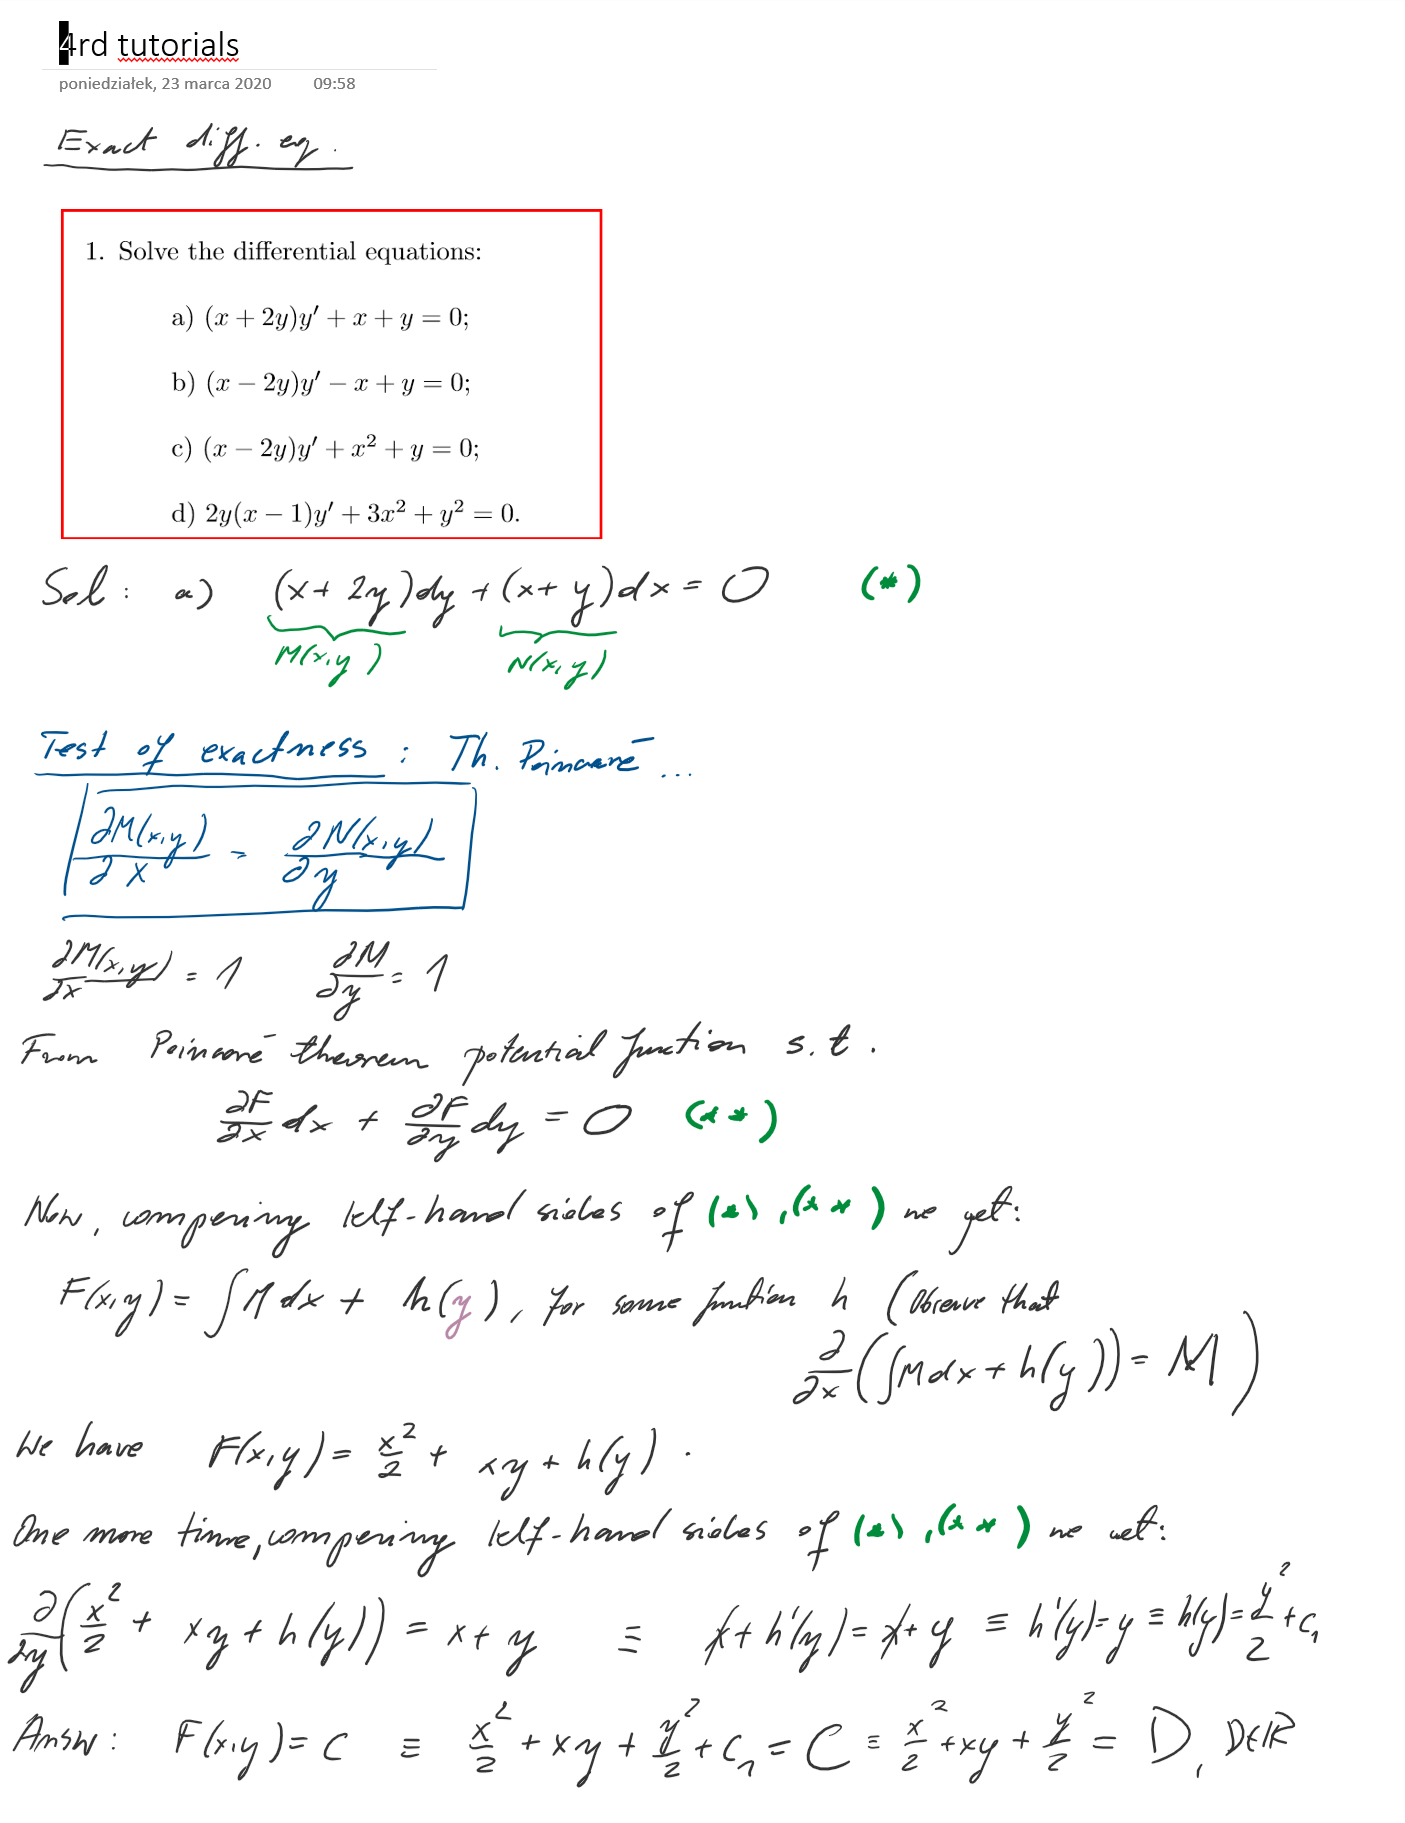 4rd tutorials
poniedziałek, 23 marca 2020 09:58
Exact diff. eq.
1. Solve the differential equations:
a) (x + 2y)y′ + x + y = 0;
b) (x − 2y)y′ − x + y = 0;
c) (x − 2y)y′ + x² + y = 0;
d) 2y(x − 1)y′ + 3x² + y² = 0.
Sol: a) (x+ 2y)dy + (x+ y)dx = 0 (*)
M(x,y) N(x,y)
Test of exactness: Th. Poincaré ...
∂M(x,y)/∂x = ∂N(x,y)/∂y
∂M(x,y)/∂x = 1 ∂M/∂y = 1
From Poincaré theorem potential function s.t.
∂F/∂x dx + ∂F/∂y dy = 0 (**)
Now, compering left-hand sides of (*), (**) we get:
F(x,y) = ∫M dx + h(y), for some function h (Observe that
∂/∂x (∫Mdx + h(y)) = M)
We have F(x,y) = x²/2 + xy + h(y).
One more time, compering left-hand sides of (*), (**) we get:
∂/∂y (x²/2 + xy + h(y)) = x + y ≡ x + h'(y) = x + y ≡ h'(y) = y ≡ h(y) = y²/2 + C₁
Answ: F(x,y) = C ≡ x²/2 + xy + y²/2 + C₁ = C ≡ x²/2 + xy + y²/2 = D, D∈ℝ